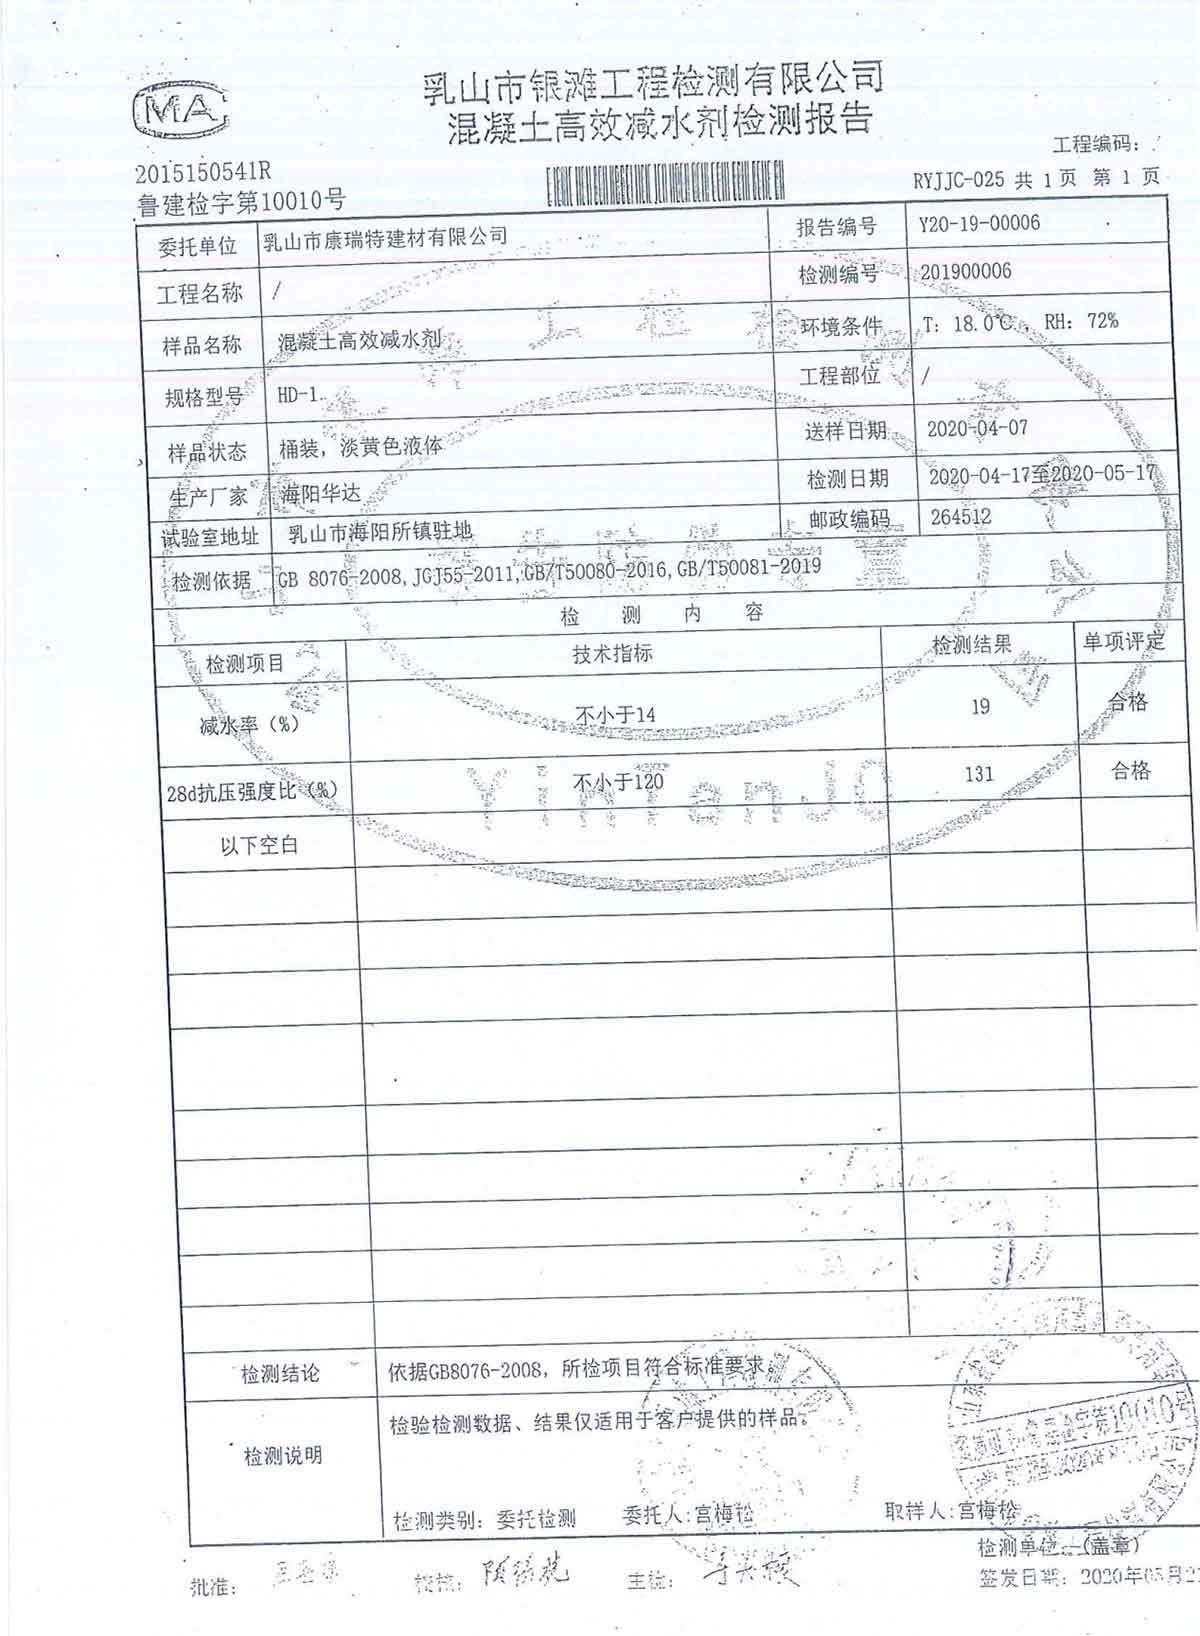 乳山市银滩工程检测有限公司
混凝土高效减水剂检测报告
MA
2015150541R
鲁建检字第10010号
工程编码:
RYJJC-025 共 1 页 第 1 页
委托单位 乳山市康瑞特建材有限公司 报告编号 Y20-19-00006
工程名称 / 检测编号 201900006
样品名称 混凝土高效减水剂 环境条件 T: 18.0℃ 、RH: 72%
规格型号 HD-1 工程部位 /
样品状态 桶装, 淡黄色液体 送样日期 2020-04-07
生产厂家 海阳华达 检测日期 2020-04-17至2020-05-17
试验室地址 乳山市海阳所镇驻地 邮政编码 264512
检测依据 GB 8076-2008, JGJ55-2011, GB/T50080-2016, GB/T50081-2019
检 测 内 容
检测项目 技术指标 检测结果 单项评定
减水率 (%) 不小于14 19 合格
28d抗压强度比 (%) 不小于120 131 合格
YinTanJC
以下空白
检测结论 依据GB8076-2008, 所检项目符合标准要求。
检测说明 检验检测数据、结果仅适用于客户提供的样品。
检测类别: 委托检测 委托人: 宫梅松 取样人: 宫梅松
检测单位 (盖章)
批准: 校核: 主检: 签发日期: 2020年05月21